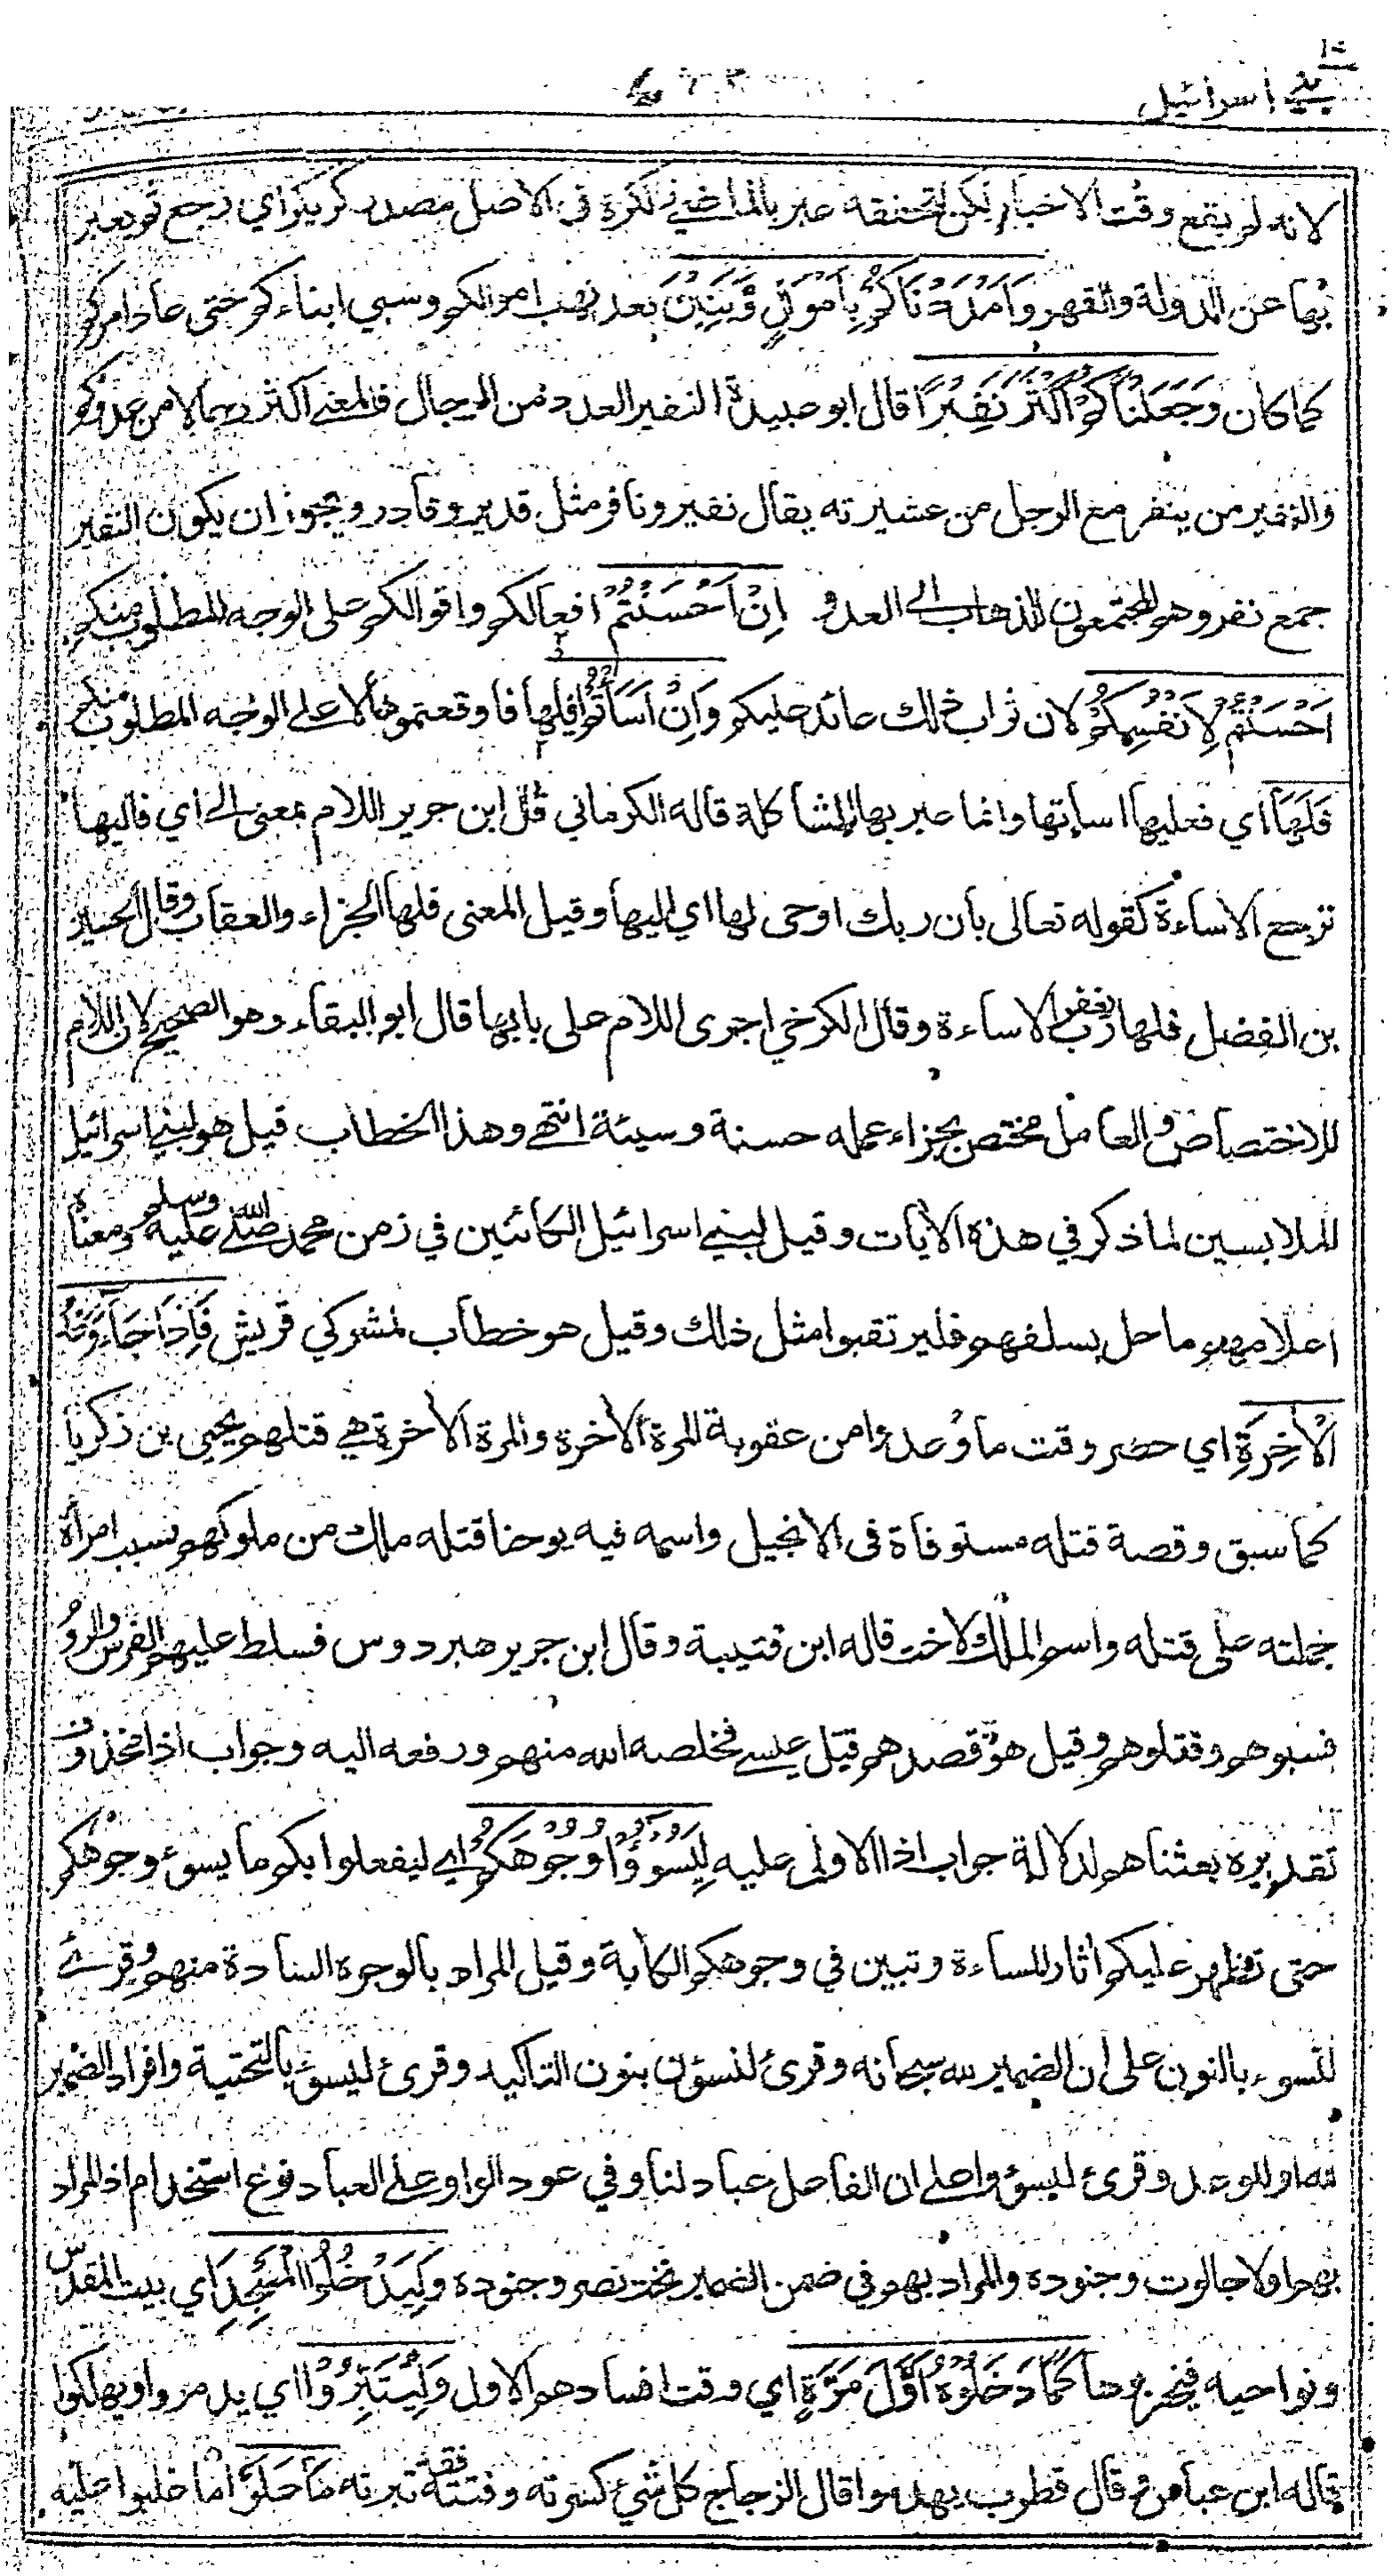 بني اسرائيل
لانه لم يقع وقت الاخبار لكن لتحققه عبر بالماضي والكرة في الاصل مصدر كر يكر اي رجع ثم يعبر
بها عن الدولة والقهر وَاَمْدَدْنَاكُمْ بِاَمْوَالٍ وَّبَنِيْنَ بعد نهب اموالكم وسبي ابناءكم حتى عاد امركم
كما كان وَجَعَلْنَاكُمْ اَكْثَرَ نَفِيْرًا قال ابو عبيدة النفير العدد من الرجال فالمعنى اكثر رجالا من عدوكم
والنفير من ينفر مع الرجل من عشيرته يقال نفير ونافر مثل قدير وقادر ويجوز ان يكون النفير
جمع نفر وهم المجتمعون للذهاب الى العدو اِنْ اَحْسَنْتُمْ افعالكم واقوالكم على الوجه المطلوب منكم
اَحْسَنْتُمْ لِاَنْفُسِكُمْ لان ثواب ذلك عائد عليكم وَاِنْ اَسَأْتُمْ افعالكم فاوقعتموها لا على الوجه المطلوب منكم
فَلَهَا اي فعليها اساءتها وانما عبر بها للمشاكلة قاله الكرماني قال ابن جرير اللام بمعنى الى اي فاليها
ترجع الاساءة كقوله تعالى بان ربك اوحى لها اي اليها وقيل المعنى فلها الجزاء والعقاب وقال الحسين
بن الفضل فلها رب يغفر الاساءة وقال الكرخي اجرى اللام على بابها قال ابو البقاء وهو الصحيح لان اللام
للاختصاص والعامل مختص بجزاء عمله حسنة وسيئة انتهى وهذا الخطاب قيل هو لبني اسرائيل
الملابسين لما ذكر في هذه الآيات وقيل لبني اسرائيل الكائنين في زمن محمد صلى الله عليه وسلم ومعناه
اعلامهم ما حل بسلفهم فليرتقبوا مثل ذلك وقيل هو خطاب لمشركي قريش فَاِذَا جَاءَ وَعْدُ
الْاٰخِرَةِ اي حضر وقت ما وعدوا من عقوبة المرة الآخرة والمرة الآخرة هي قتلهم يحيى بن زكريا
كما سبق وقصة قتله مستوفاة في الانجيل واسمه فيه يوحنا قتله ملك من ملوكهم بسبب امرأة
حملته على قتله واسم الملك لاخت قاله ابن قتيبة وقال ابن جرير هيردوس فسلط عليهم الفرس والروم
فسبوهم وقتلوهم وقيل هو قصدهم قتل عيسى فخلصه الله منهم ورفعه اليه وجواب اذا محذوف
تقديره بعثناهم لدلالة جواب اذا الاولى عليه لِيَسُوْءُوْا وُجُوْهَكُمْ اي ليفعلوا بكم ما يسوء وجوهكم
حتى تظهر عليكم آثار المساءة وتبين في وجوهكم الكآبة وقيل المراد بالوجوه السادة منهم وقرئ
لنسوء بالنون على ان الضمير لله سبحانه وقرئ لنسؤن بنون التاكيد وقرئ ليسوء بالتحتية وافراد الضمير
لله او للوعد وقرئ ليسوءوا على ان الفاعل عباد لنا وفي عود الواو على العباد نوع استخدام اذ المراد
بهم اولا جالوت وجنوده والمراد بهم في ضمن الضمير بخت نصر وجنوده وَلِيَدْخُلُوا الْمَسْجِدَ اي بيت المقدس
ونواحيه فيخربوها كَمَا دَخَلُوْهُ اَوَّلَ مَرَّةٍ اي وقت افسادهم الاول وَلِيُتَبِّرُوْا اي يدمروا ويهلكوا
قاله ابن عباس وقال قطرب يهدموا قال الزجاج كل شيء كسرته وفتتته فقد تبرته مَا عَلَوْا اي ما غلبوا عليه